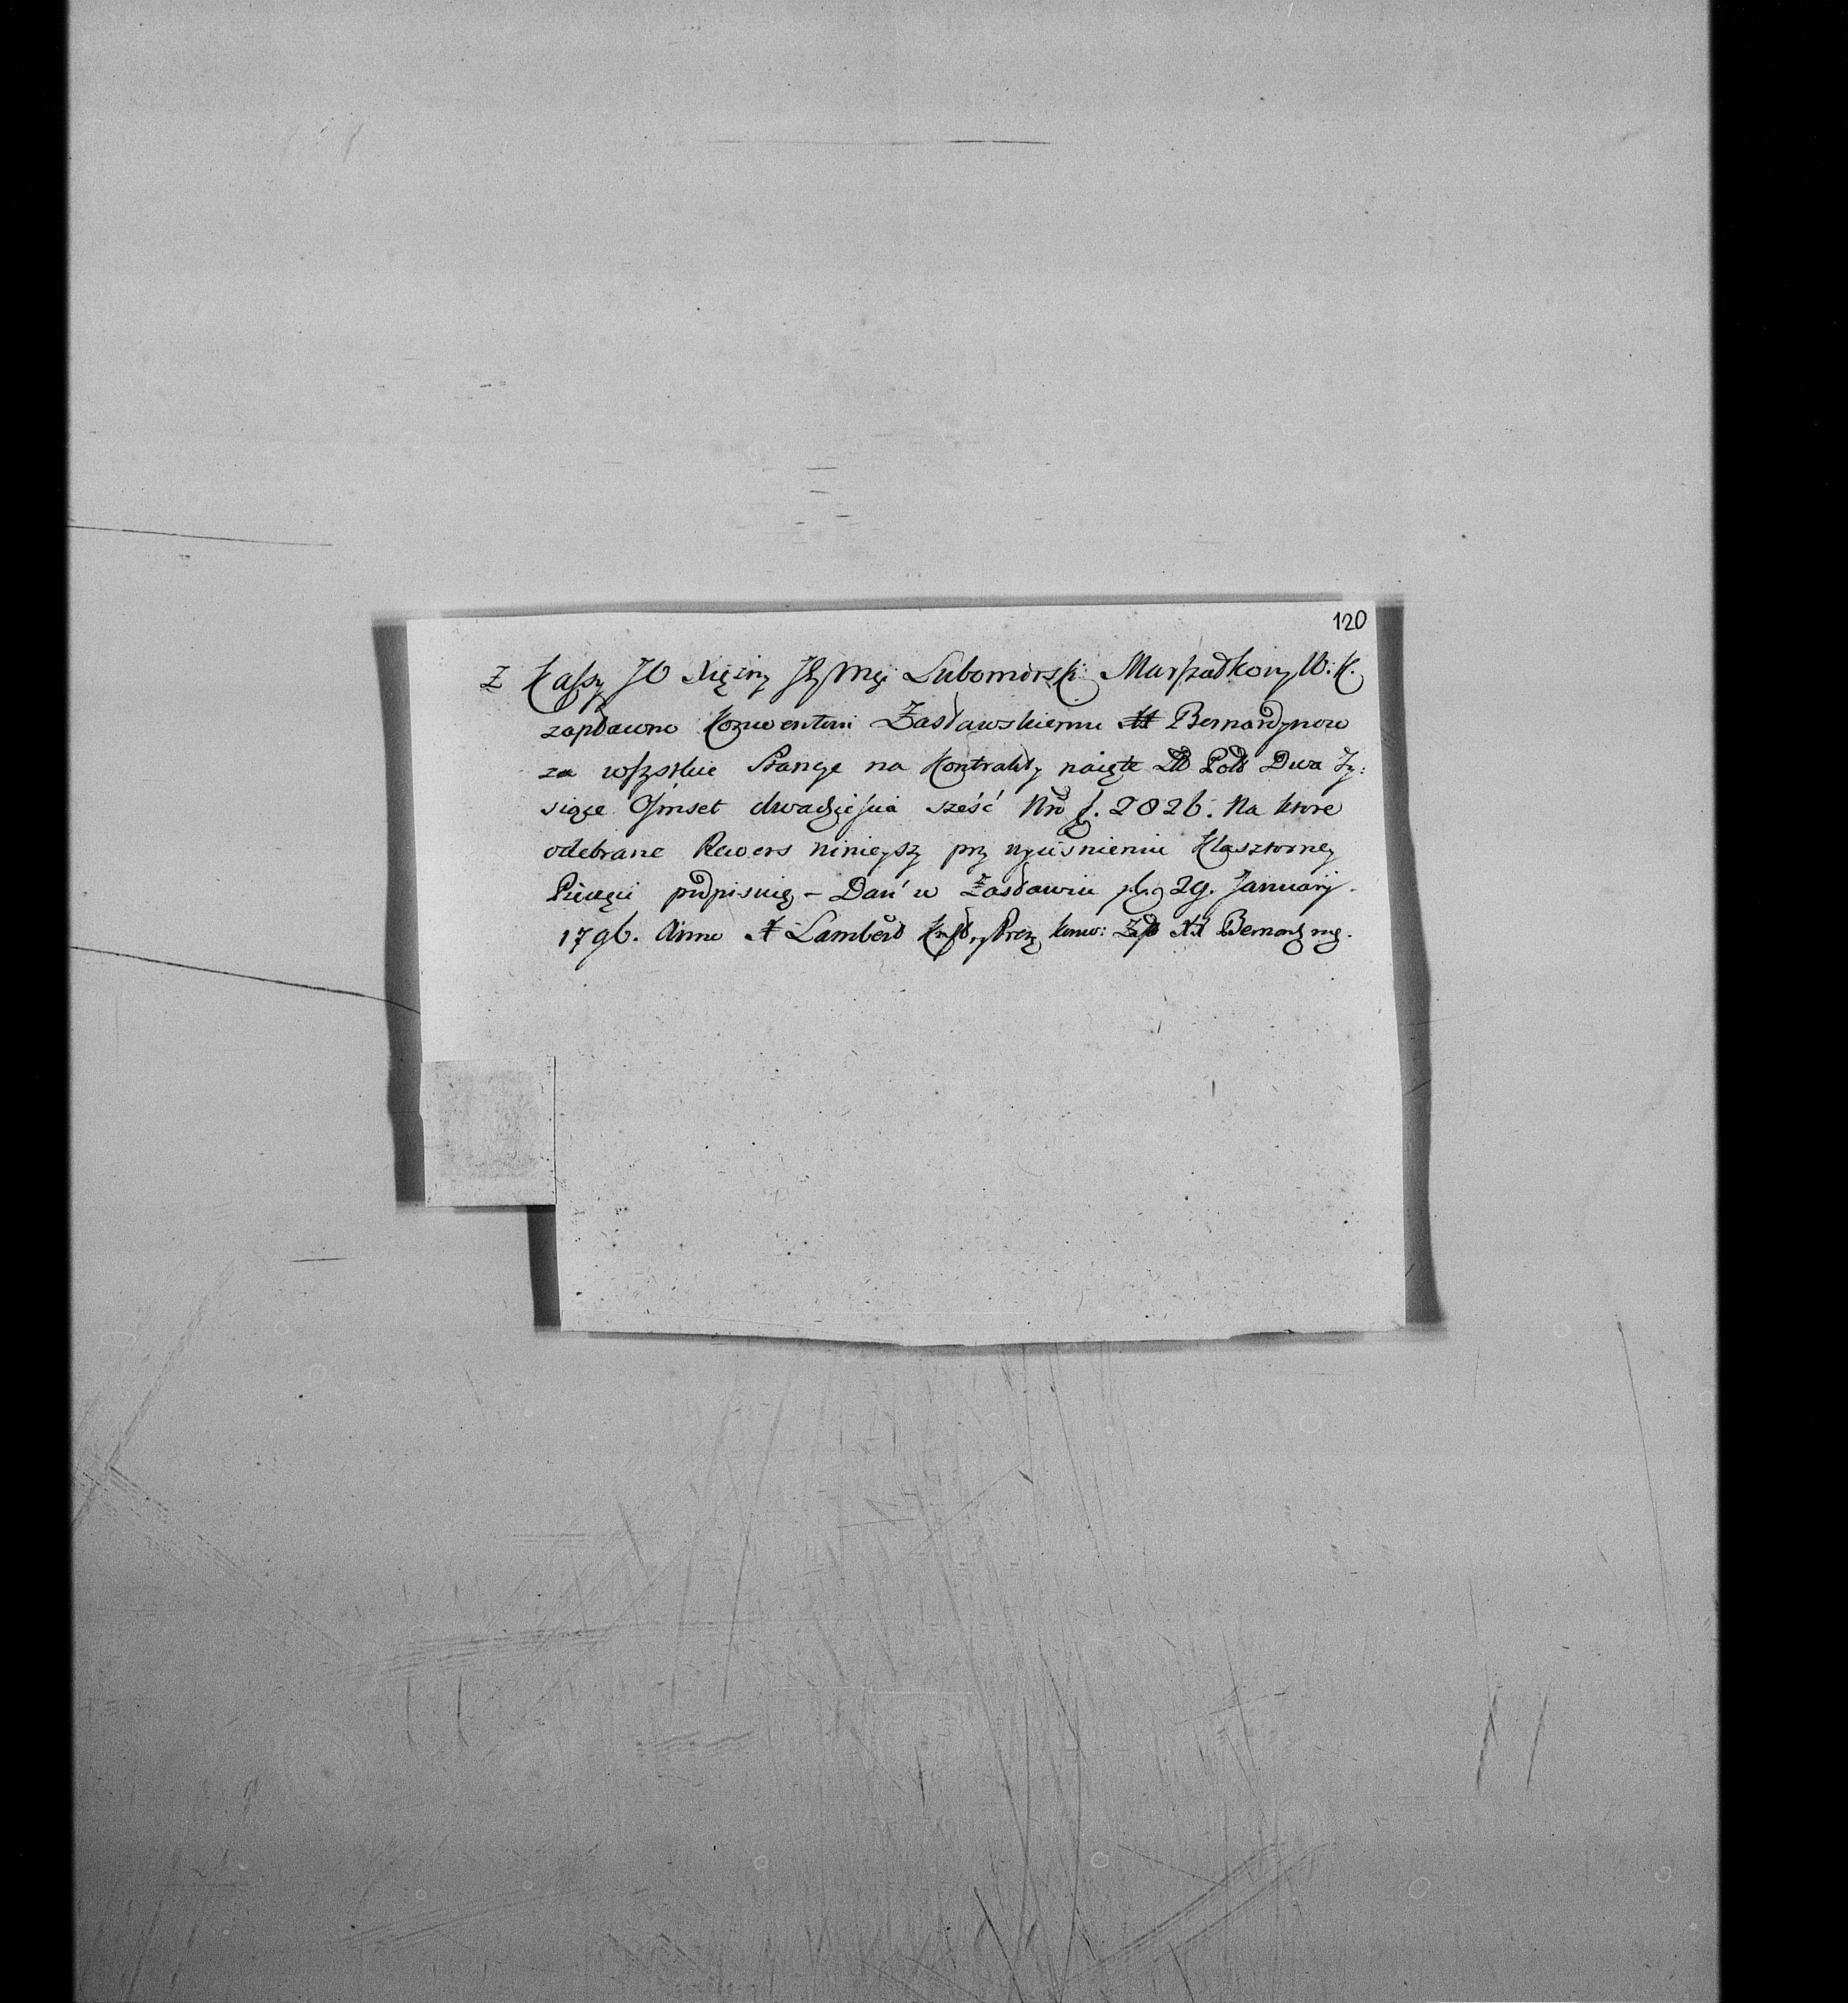 120
Z Kassy JO Xiężny JeyMci Lubomirski: Marszałkowy W: K.
zapłacono Konwentowi Zasławskiemu XX Bernardynow
za wszystkie Stancye na Kontrakty naięte Zło Pols Dwa Ty:
siące Ośmset dwadzieścia sześć Nro f. 2826. Na ktore
odebrane Rewers ninieyszy przy wyciśnieniu Klasztorney
Pieczęci podpisuię – Dań w Zasławiu 29. Januarij.
1796. Anno X Lamberd Konw: Zas XX Bernardynow.